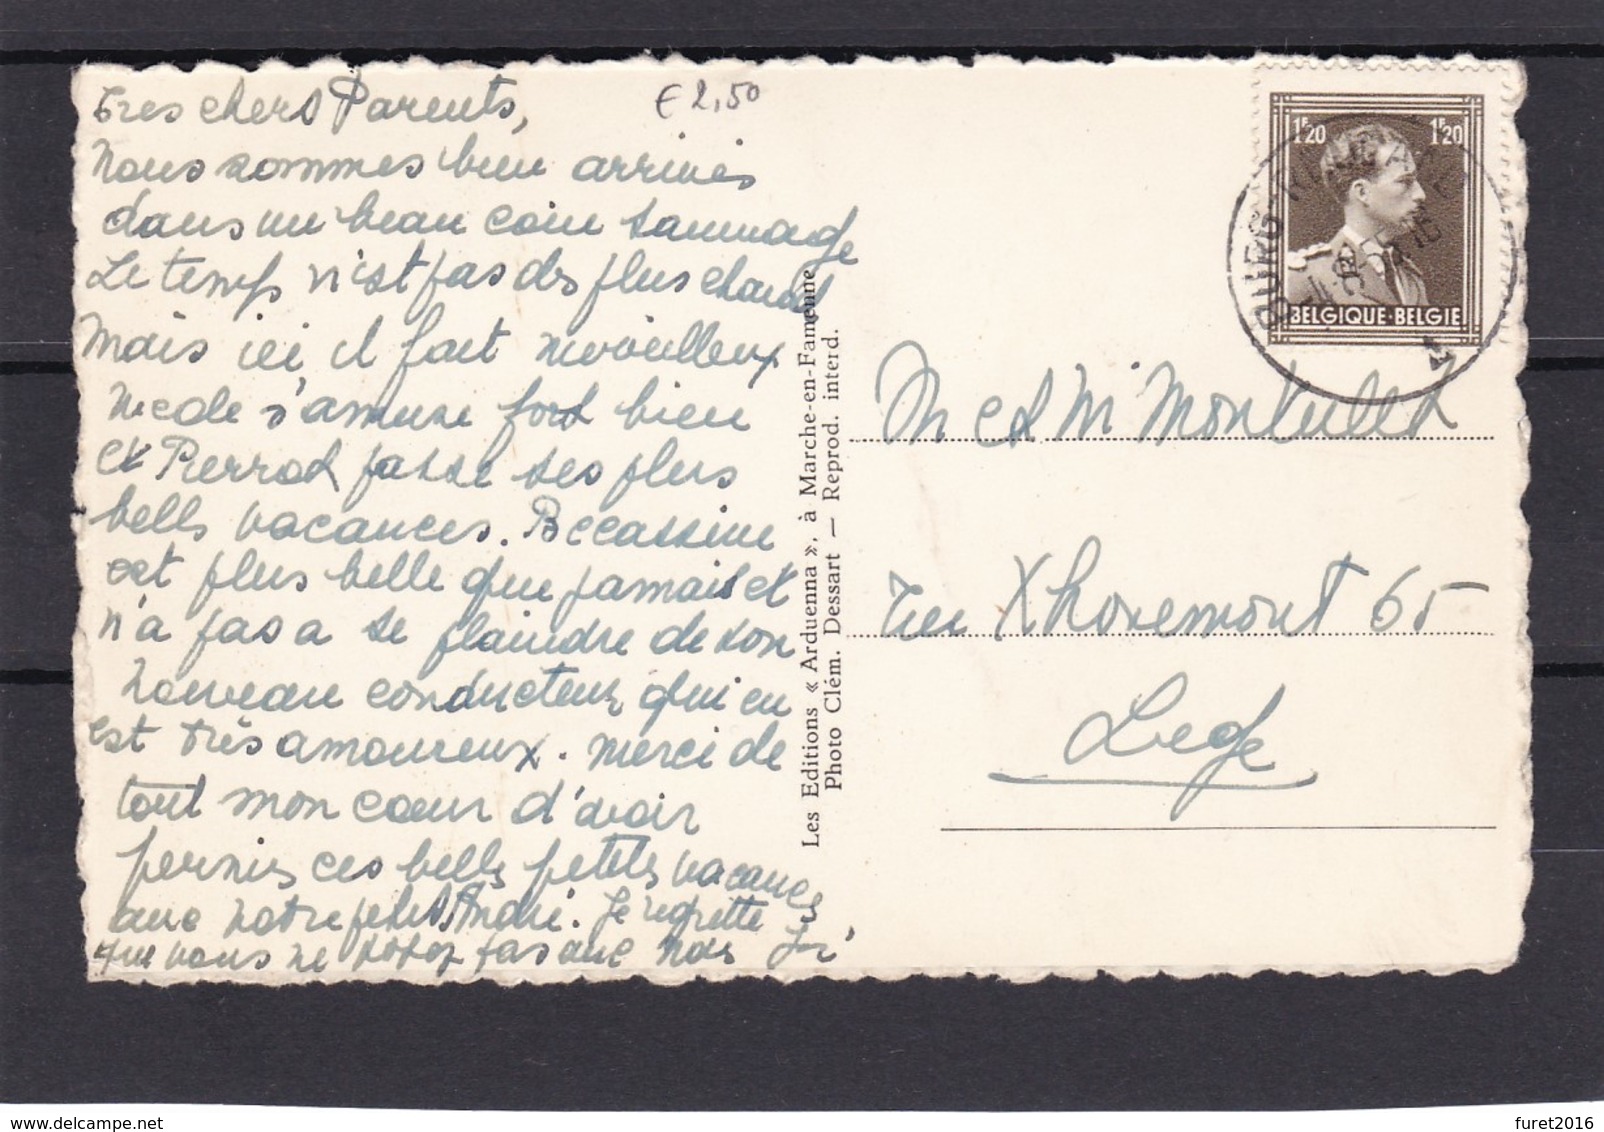 Tres chers Parents,
€ 2,50
nous sommes bien arrivés
dans un beau coin sauvage
Le temps n'est pas des plus chaud
mais ici il fait merveilleux
Nicole s'amuse fort bien
et Pierrot passe ses plus
belles vacances. Beccassine
est plus belle que jamais et
n'a pas a se plaindre de son
nouveau conducteur qui en
est très amoureux. merci de
tout mon cœur d'avoir
permis ces belles petites vacances
avec notre petit André. Je regrette
que vous ne soyez pas avec nous
Les Editions « Arduenna », à Marche-en-Famenne
Photo Clém. Dessart — Reprod. interd.
1F20 1F20
BELGIQUE·BELGIE
BURG-REULAND
M et Mme
rue Xhovemont 65
Liege
furet2016